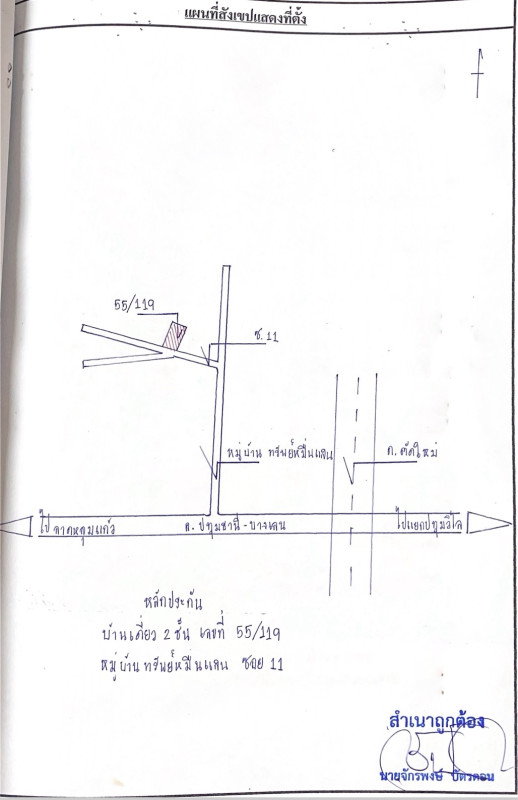 แผนที่สังเขปแสดงที่ตั้ง
55/119
ซ.11
หมู่บ้าน ทรัพย์หมื่นแสน
ถ.ตัดใหม่
ไป ลาดหลุมแก้ว
ถ. ปทุมธานี - บางเลน
ไปแยกปทุมวิไล
หลักประกัน
บ้านเดี่ยว 2 ชั้น เลขที่ 55/119
หมู่บ้าน ทรัพย์หมื่นแสน ซอย 11
สำเนาถูกต้อง
นายจักรพงษ์ บัตรคอน